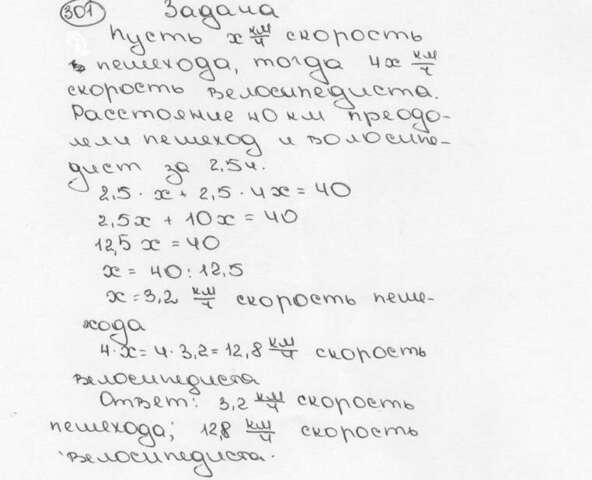 301 Задача
Пусть x км/ч скорость
пешехода, тогда 4x км/ч
скорость велосипедиста.
Расстояние 40 км преодо-
лели пешеход и волосипе-
дист за 2,5ч.
2,5 · x + 2,5 · 4x = 40
2,5x + 10x = 40
12,5 x = 40
x = 40 : 12,5
x = 3,2 км/ч скорость пеше-
хода
4·x = 4 · 3,2 = 12,8 км/ч скорость
велосипедиста
Ответ: 3,2 км/ч скорость
пешехода; 12,8 км/ч скорость
велосипедиста.